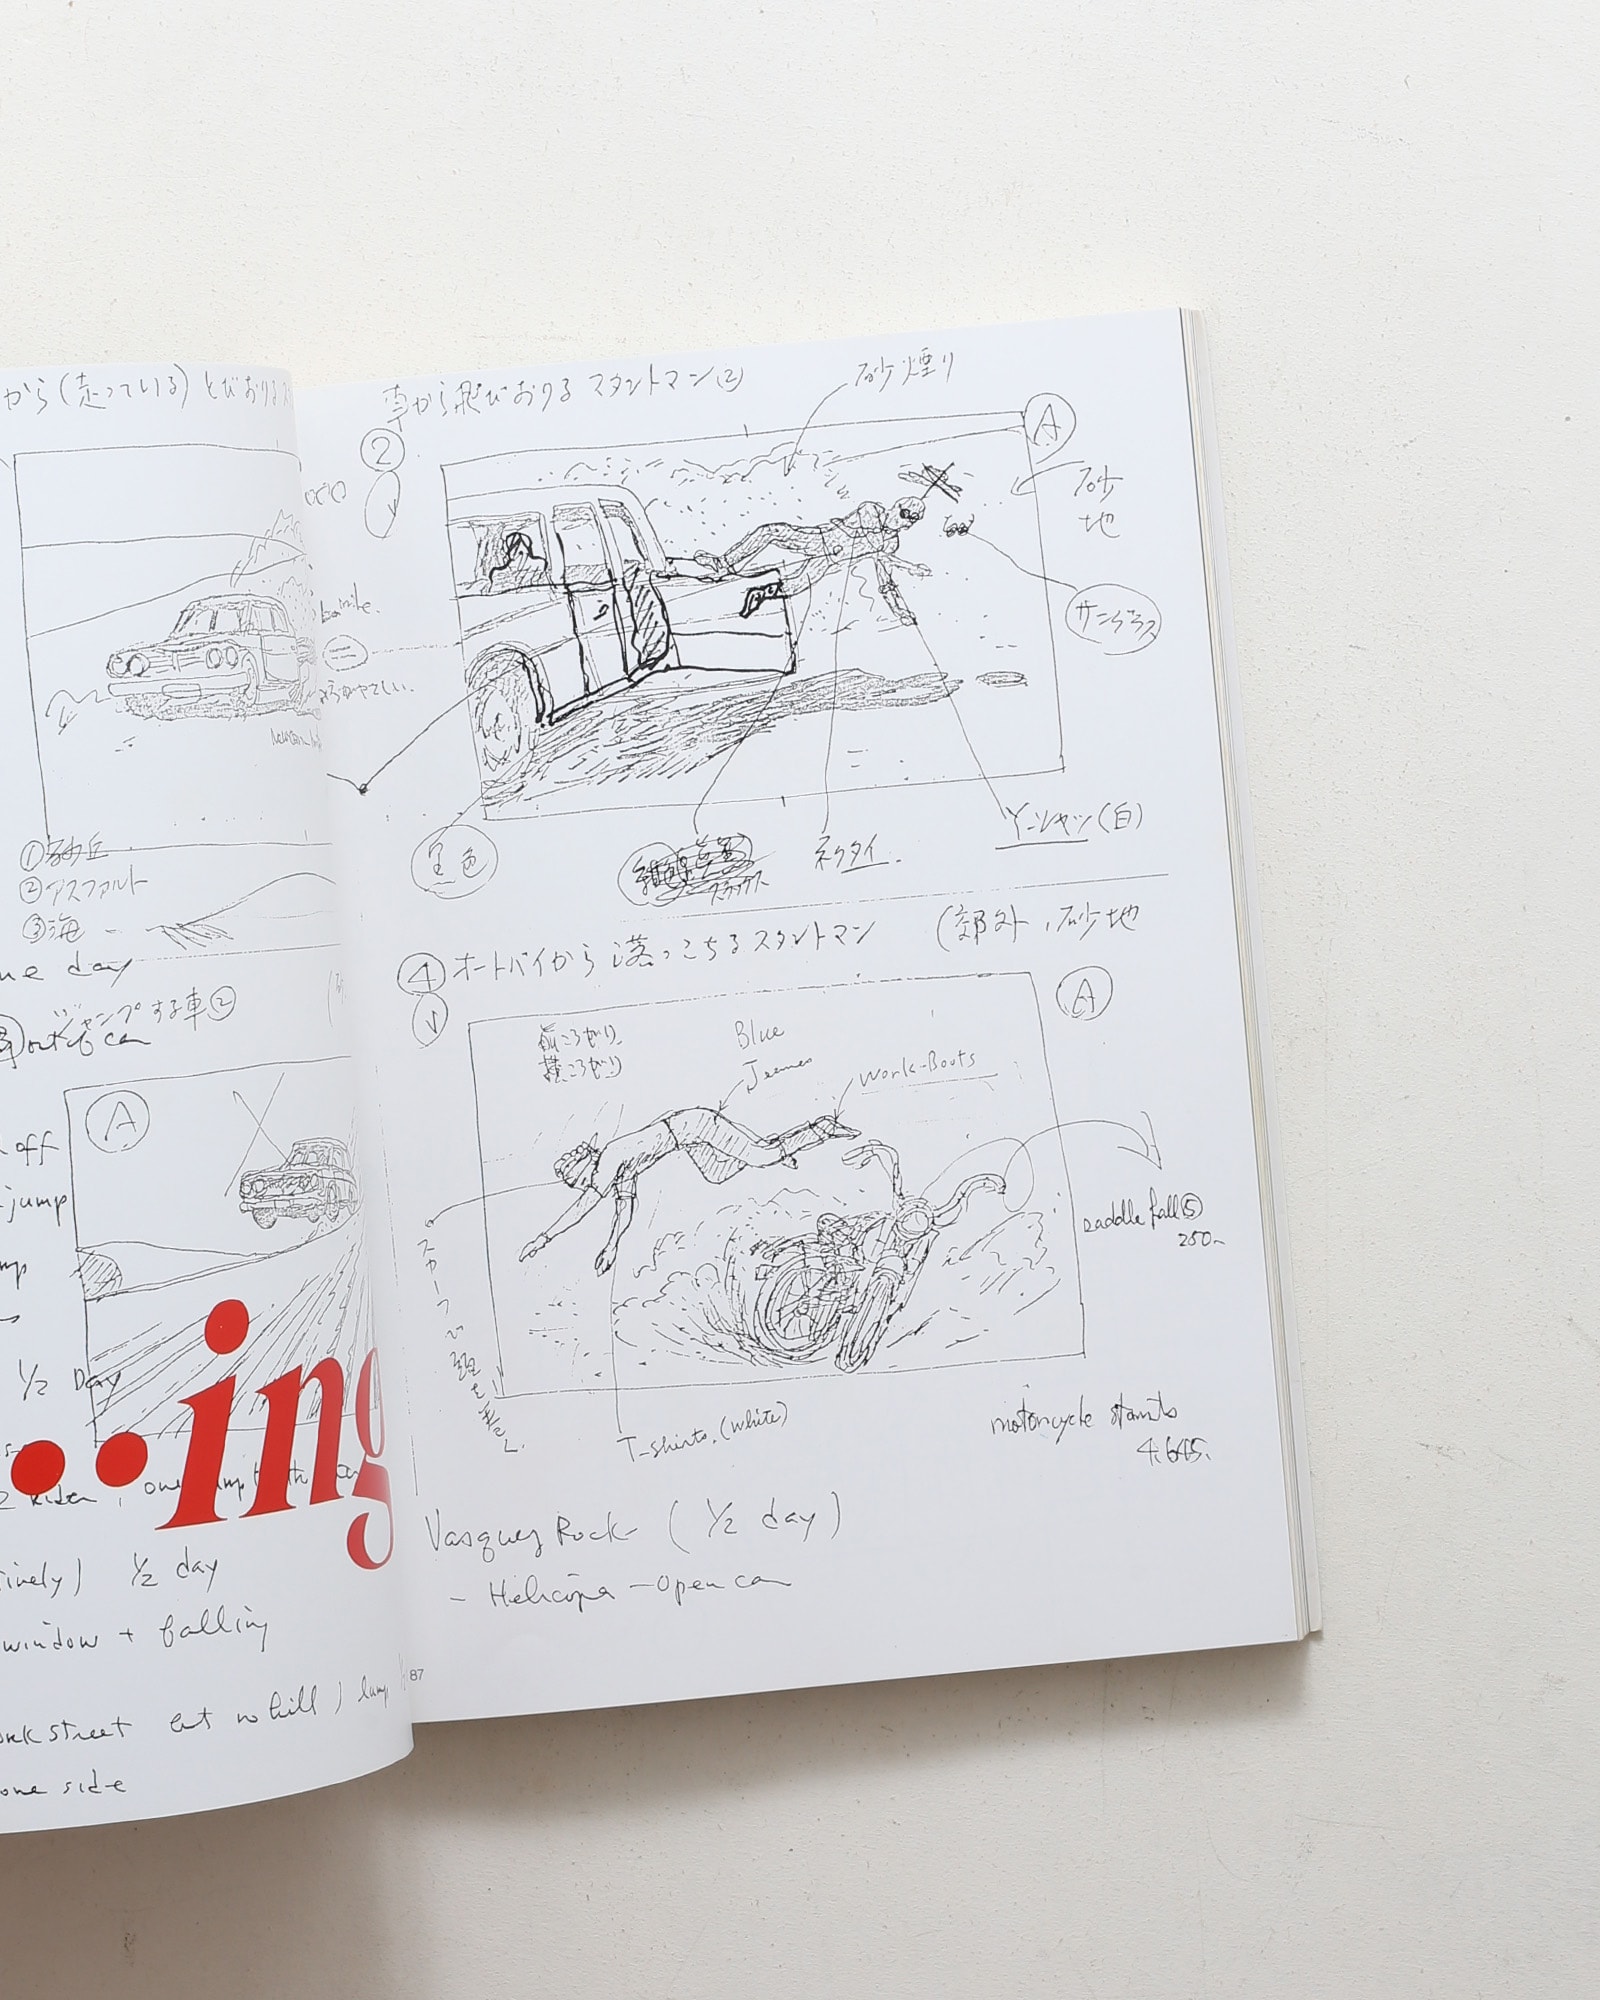 から(走っている)とびおりるス
①砂丘
②アスファルト
③海
ne day
ジャンプする車②
out of car
A
off
jump
mp
1/2 Day
...ing
1/2 day
window + falling
street but no hill) jump
one side
87
車から飛びおりるスタントマン(2)
砂煙り
②
A
砂
地
サングラス
黒色
スラックス
ネクタイ.
Y-シャツ(白)
④ オートバイから落っこちるスタントマン (郊外, 砂地
A
前ころがり
横ころがり
Blue
Jeans
work-Boots
saddle fall⑤
250-
スカーフで顔を巻く
T-shirts.(white)
motorcycle stants
4.645.
Vasquez Rock (1/2 day)
- Helicopter - open car